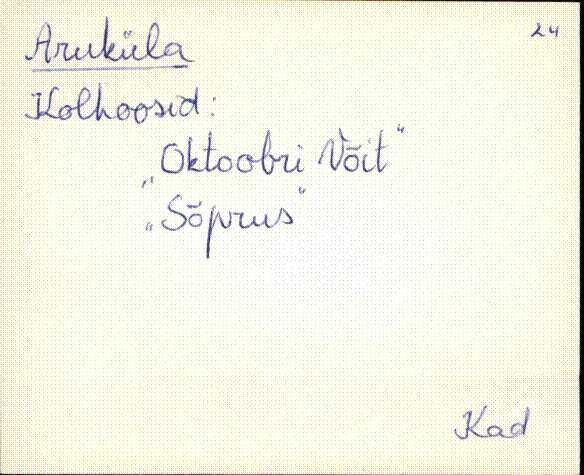 24
Aruküla
Kolhoosid:
„Oktoobri Võit"
„Sõprus"
Kad